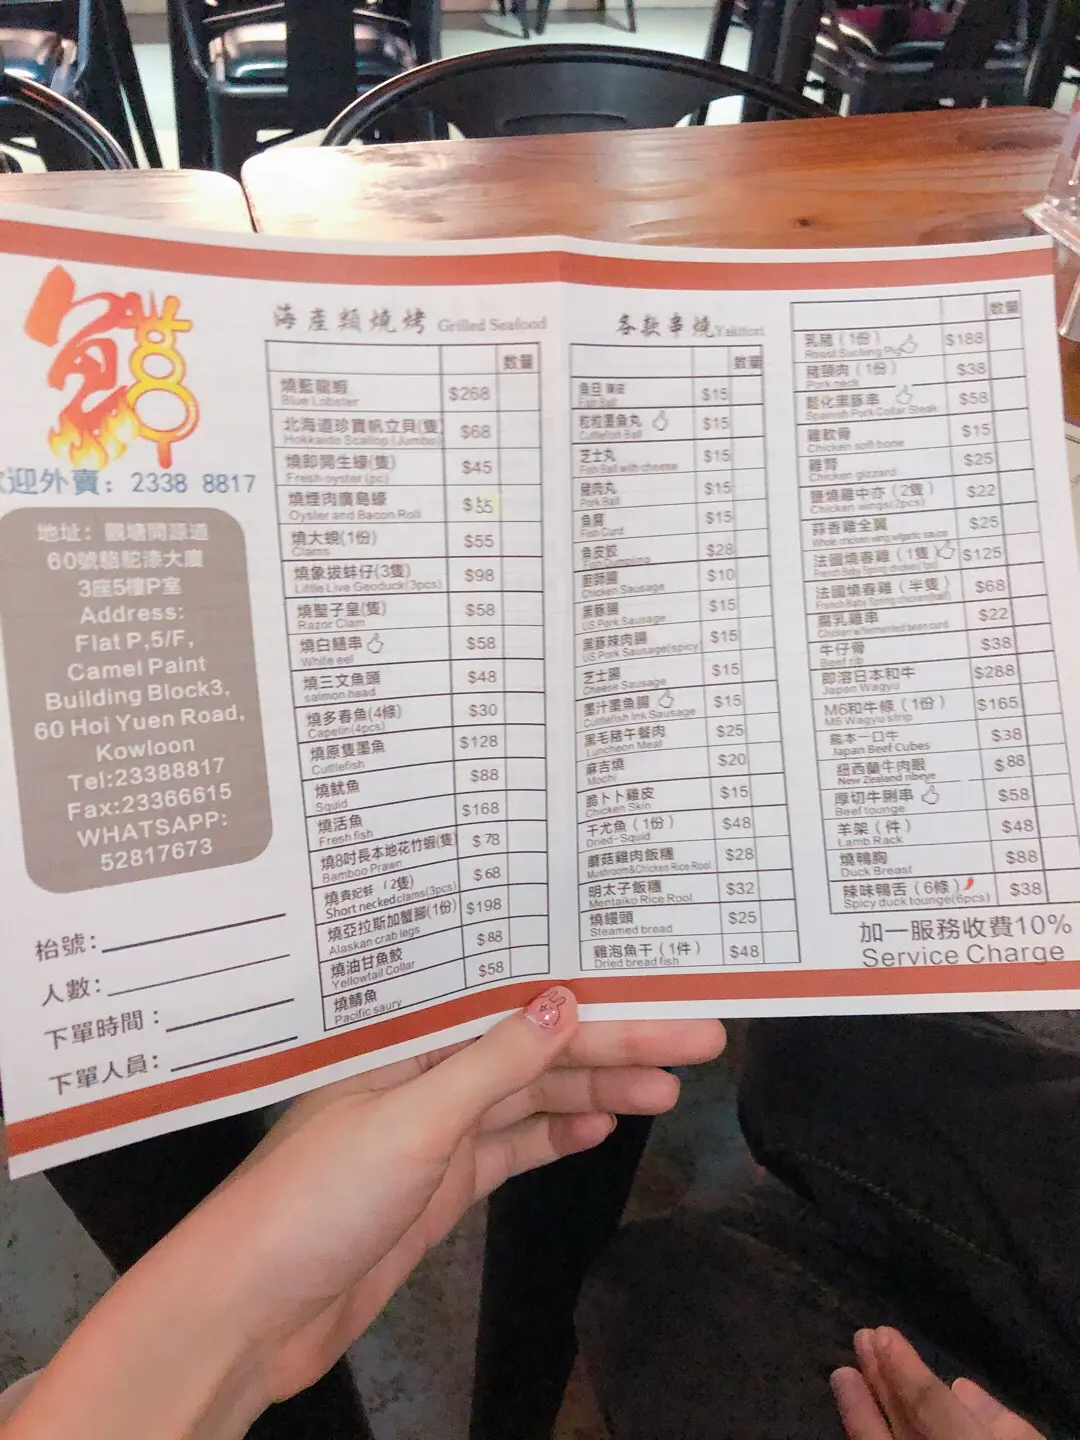 歡迎外賣: 2338 8817
地址: 觀塘開源道
60號駱駝漆大廈
3座5樓P室
Address:
Flat P,5/F,
Camel Paint
Building Block3,
60 Hoi Yuen Road,
Kowloon
Tel:23388817
Fax:23366615
WHATSAPP:
52817673
枱號:
人數:
下單時間:
下單人員:
海產類燒烤 Grilled Seafood
数量
燒藍龍蝦 $268
Blue Lobster
北海道珍寶帆立貝(隻) $68
Hokkaido Scallop (Jumbo)
燒即開生蠔(隻) $45
Fresh oyster (pc)
燒煙肉廣島蠔 $55
Oyster and Bacon Roll
燒大蜆(1份) $55
Clams
燒象拔蚌仔(3隻) $98
Little Live Geoduck(3pcs)
燒聖子皇(隻) $58
Razor Clam
燒白鱔串 $58
White eel
燒三文魚頭 $48
salmon head
燒多春魚(4條) $30
Capelin(4pcs)
燒原隻墨魚 $128
Cuttlefish
燒魷魚 $88
Squid
燒活魚 $168
Fresh fish
燒8吋長本地花竹蝦(隻) $78
Bamboo Prawn
燒貴妃蚌(2隻) $68
Short necked clams(3pcs)
燒亞拉斯加蟹腳(1份) $198
Alaskan crab legs
燒油甘魚鮫 $88
Yellowtail Collar
燒鯖魚 $58
Pacific saury
各款串燒 Yakitori
数量
魚旦 $15
Fish Ball
粒粒墨魚丸 $15
Cuttlefish Ball
芝士丸 $15
Fish Ball with cheese
豬肉丸 $15
Pork Ball
魚腐 $15
Fish Curd
魚皮餃 $28
Fish Dumpling
廚師腸 $10
Chicken Sausage
黑豚腸 $15
US Pork Sausage
黑豚辣肉腸 $15
US Pork Sausage(spicy)
芝士腸 $15
Cheese Sausage
墨汁墨魚腸 $15
Cuttlefish Ink Sausage
黑毛豬午餐肉 $25
Luncheon Meat
麻吉燒 $20
Mochi
脆卜卜雞皮 $15
Chicken Skin
干尤魚(1份) $48
Dried-Squid
蘑菇雞肉飯糰 $28
Mushroom&Chicken Rice Rool
明太子飯糰 $32
Mentaiko Rice Rool
燒饅頭 $25
Steamed bread
雞泡魚干(1件) $48
Dried bread fish
数量
乳豬(1份) $188
Roast Sucking Pig
豬頸肉(1份) $38
Pork neck
鬆化黑豚串 $58
Spanish Pork Collar Steak
雞軟骨 $15
Chicken soft bone
雞腎 $25
Chicken gizzard
鹽燒雞中亦(2隻) $22
Chicken wings(2pcs)
蒜香雞全翼 $25
Whole chicken wing w/garlic sauce
法國燒春雞(1隻) $125
French Baby Spring chicken(1pc)
法國燒春雞(半隻) $68
French Baby Spring chicken(half)
腐乳雞串 $22
Chicken w/fermented bean curd
牛仔骨 $38
Beef rib
即溶日本和牛 $288
Japan Wagyu
M6和牛條(1份) $165
M6 Wagyu strip
熊本一口牛 $38
Japan Beef Cubes
紐西蘭牛肉眼 $88
New Zealand ribeye
厚切牛脷串 $58
Beef tounge
羊架(件) $48
Lamb Rack
燒鴨胸 $88
Duck Breast
辣味鴨舌(6條) $38
Spicy duck tounge(6pcs)
加一服務收費10%
Service Charge